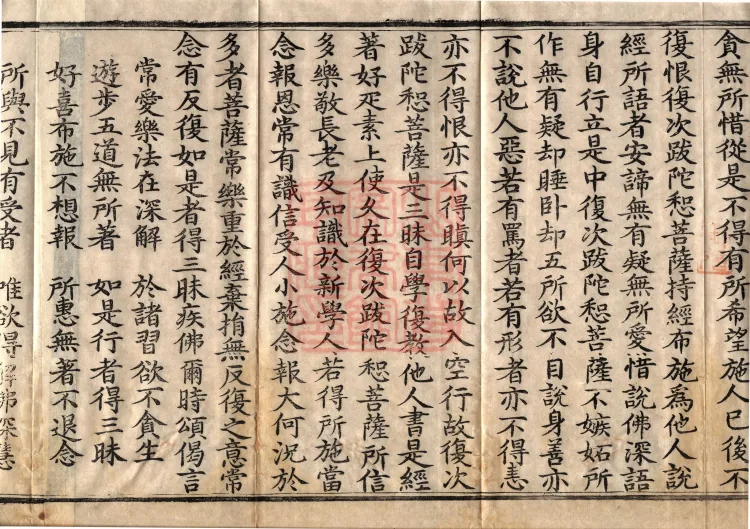 貪無所惜從是不得有所希望施人已後不
復恨復次跋陀惒菩薩持經布施爲他人說
經所語者安諦無有疑無所愛惜說佛深語
身自行立是中復次跋陀惒菩薩不嫉妬所
作無有疑却睡卧却五所欲不自說身善亦
不說他人惡若有罵者若有形者亦不得恚
亦不得恨亦不得瞋何以故入空行故復次
跋陀惒菩薩是三昧自學復教他人書是經
著好疋素上使久在復次跋陀惒菩薩所信
多樂敬長老及知識於新學人若得所施當
念報恩常有識信受人小施念報大何況於
多者菩薩常樂重於經棄捐無反復之意常
念有反復如是者得三昧疾佛爾時頌偈言
常愛樂法在深解　於諸習欲不貪生
遊步五道無所著　如是行者得三昧
好喜布施不想報　所惠無著不退念
所與不見有受者　唯欲得解佛深慧